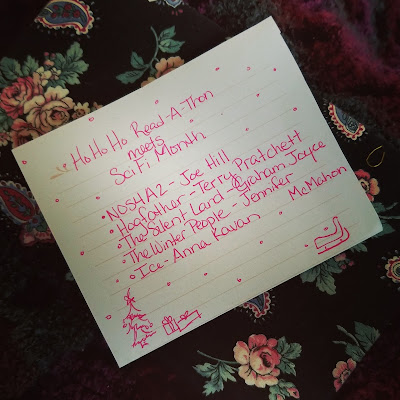 HoHoHo Read-A-Thon
meets
SciFi Month
• NOS4A2 - Joe Hill
• Hogfather - Terry Pratchett
• The Silent Land - Graham Joyce
• The Winter People - Jennifer McMahon
• Ice - Anna Kavan